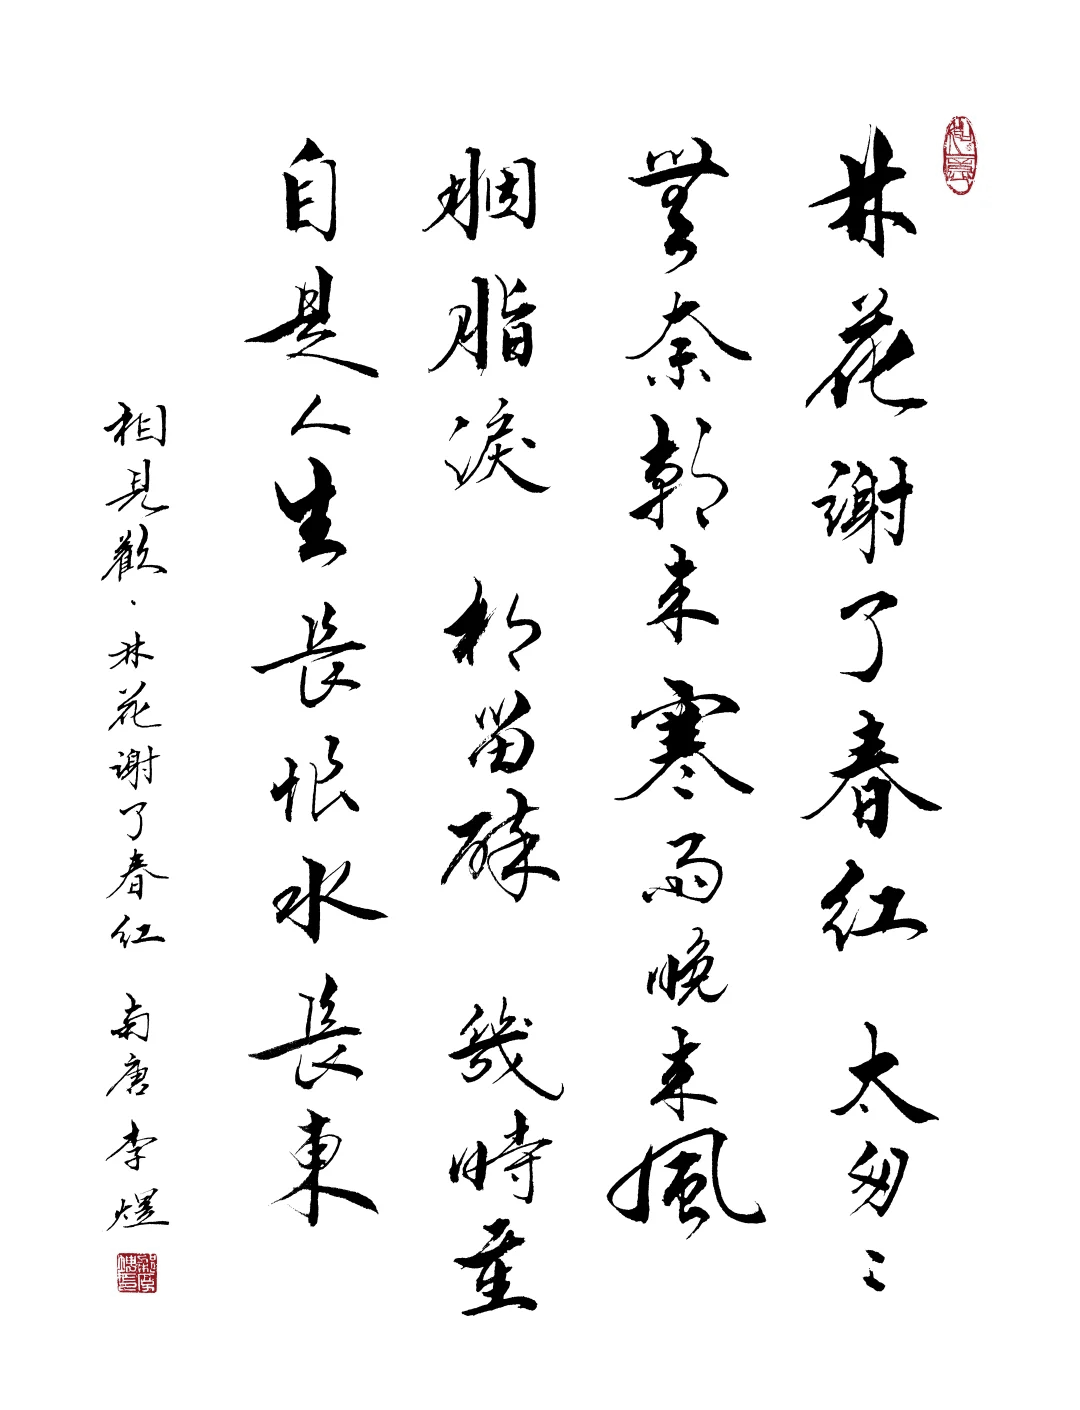 林花謝了春紅 太匆〻
無奈朝来寒雨晚来風
胭脂淚 相留醉 幾時重
自是人生長恨水長東
相見歡·林花謝了春紅 南唐 李煜